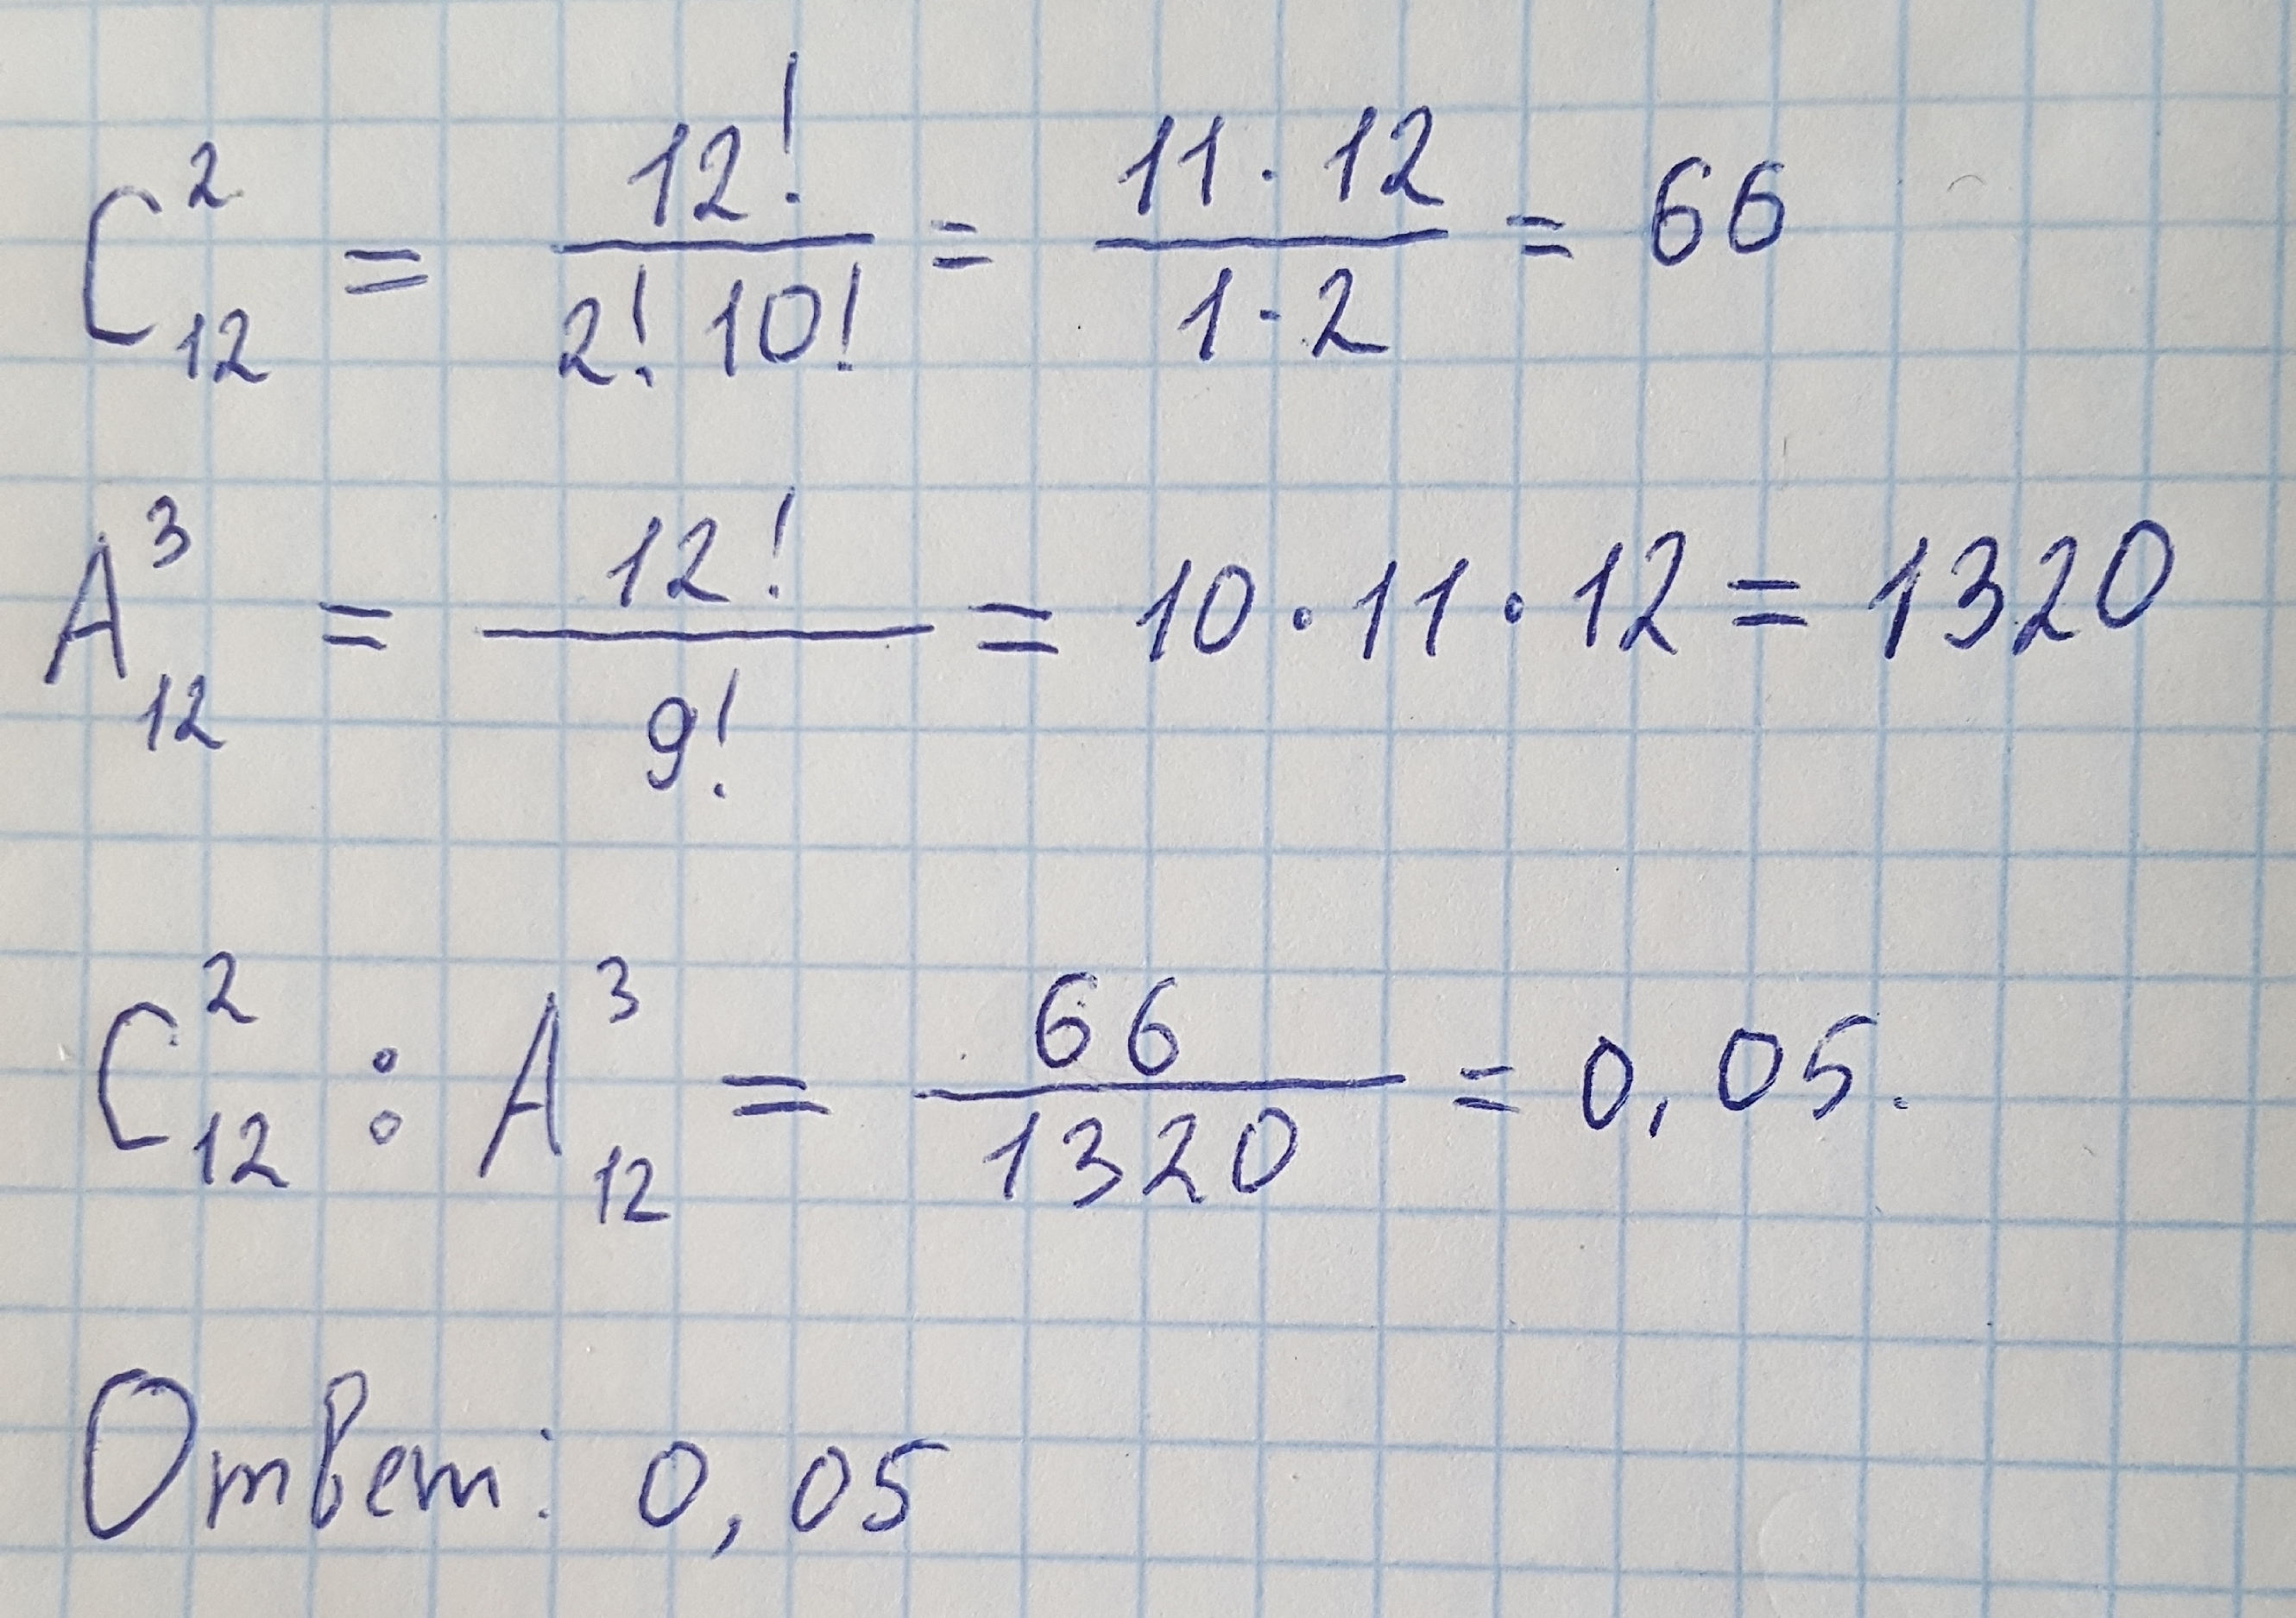 C₁₂² = 12! / (2! 10!) = (11 · 12) / (1 · 2) = 66
A₁₂³ = 12! / 9! = 10 · 11 · 12 = 1320
C₁₂² : A₁₂³ = 66 / 1320 = 0,05.
Ответ: 0,05